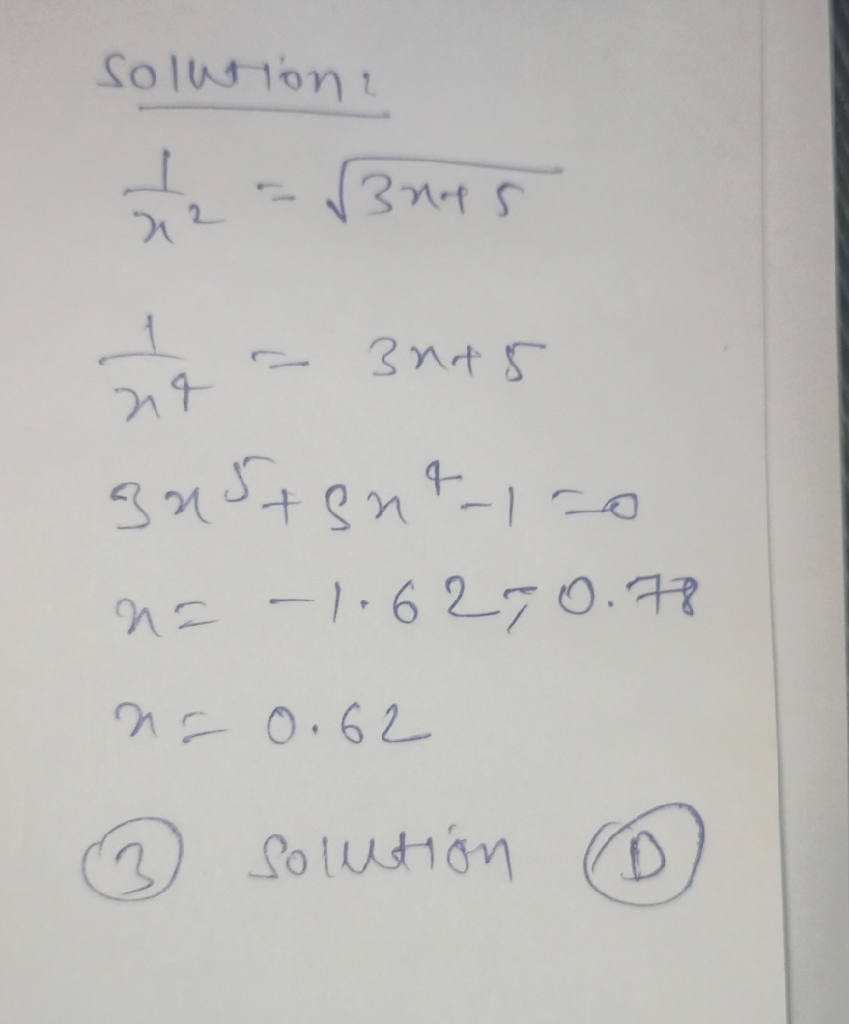 Solution:
1/x² = √3x+5
1/x⁴ = 3x+5
3x⁵+5x⁴-1=0
x= -1.62, 0.78
x= 0.62
3 solution D